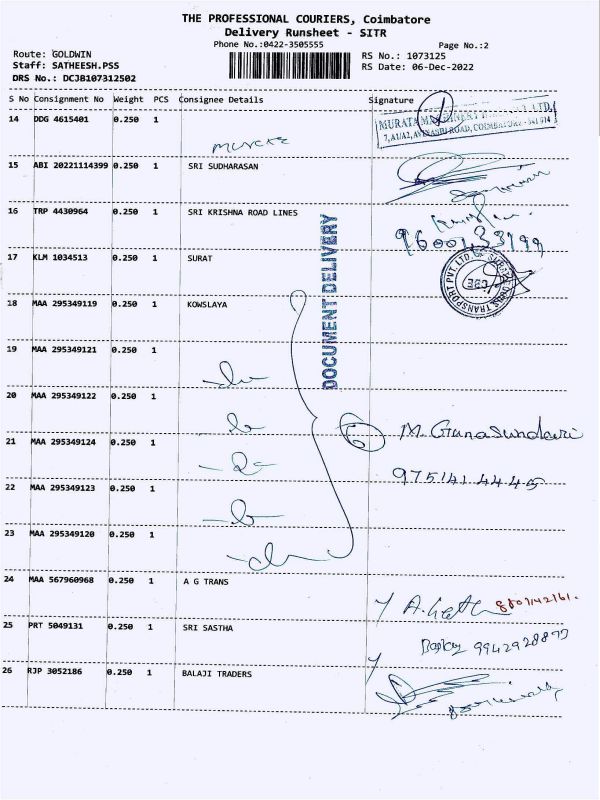 THE PROFESSIONAL COURIERS, Coimbatore
Delivery Runsheet - SITR
Phone No.:0422-3505555
Page No.:2
Route: GOLDWIN
RS No.: 1073125
Staff: SATHEESH.PSS
RS Date: 06-Dec-2022
DRS No.: DCJB107312502
S No Consignment No Weight PCS Consignee Details Signature
14 DDG 4615401 0.250 1
15 ABI 20221114399 0.250 1 SRI SUDHARASAN
16 TRP 4430964 0.250 1 SRI KRISHNA ROAD LINES
17 KLM 1034513 0.250 1 SURAT
DOCUMENT DELIVERY
18 MAA 295349119 0.250 1 KOWSLAYA
19 MAA 295349121 0.250 1
20 MAA 295349122 0.250 1
M. Gunasundari
21 MAA 295349124 0.250 1
975141 4445
22 MAA 295349123 0.250 1
23 MAA 295349120 0.250 1
24 MAA 567960968 0.250 1 A G TRANS
25 PRT 5049131 0.250 1 SRI SASTHA
26 RJP 3052186 0.250 1 BALAJI TRADERS